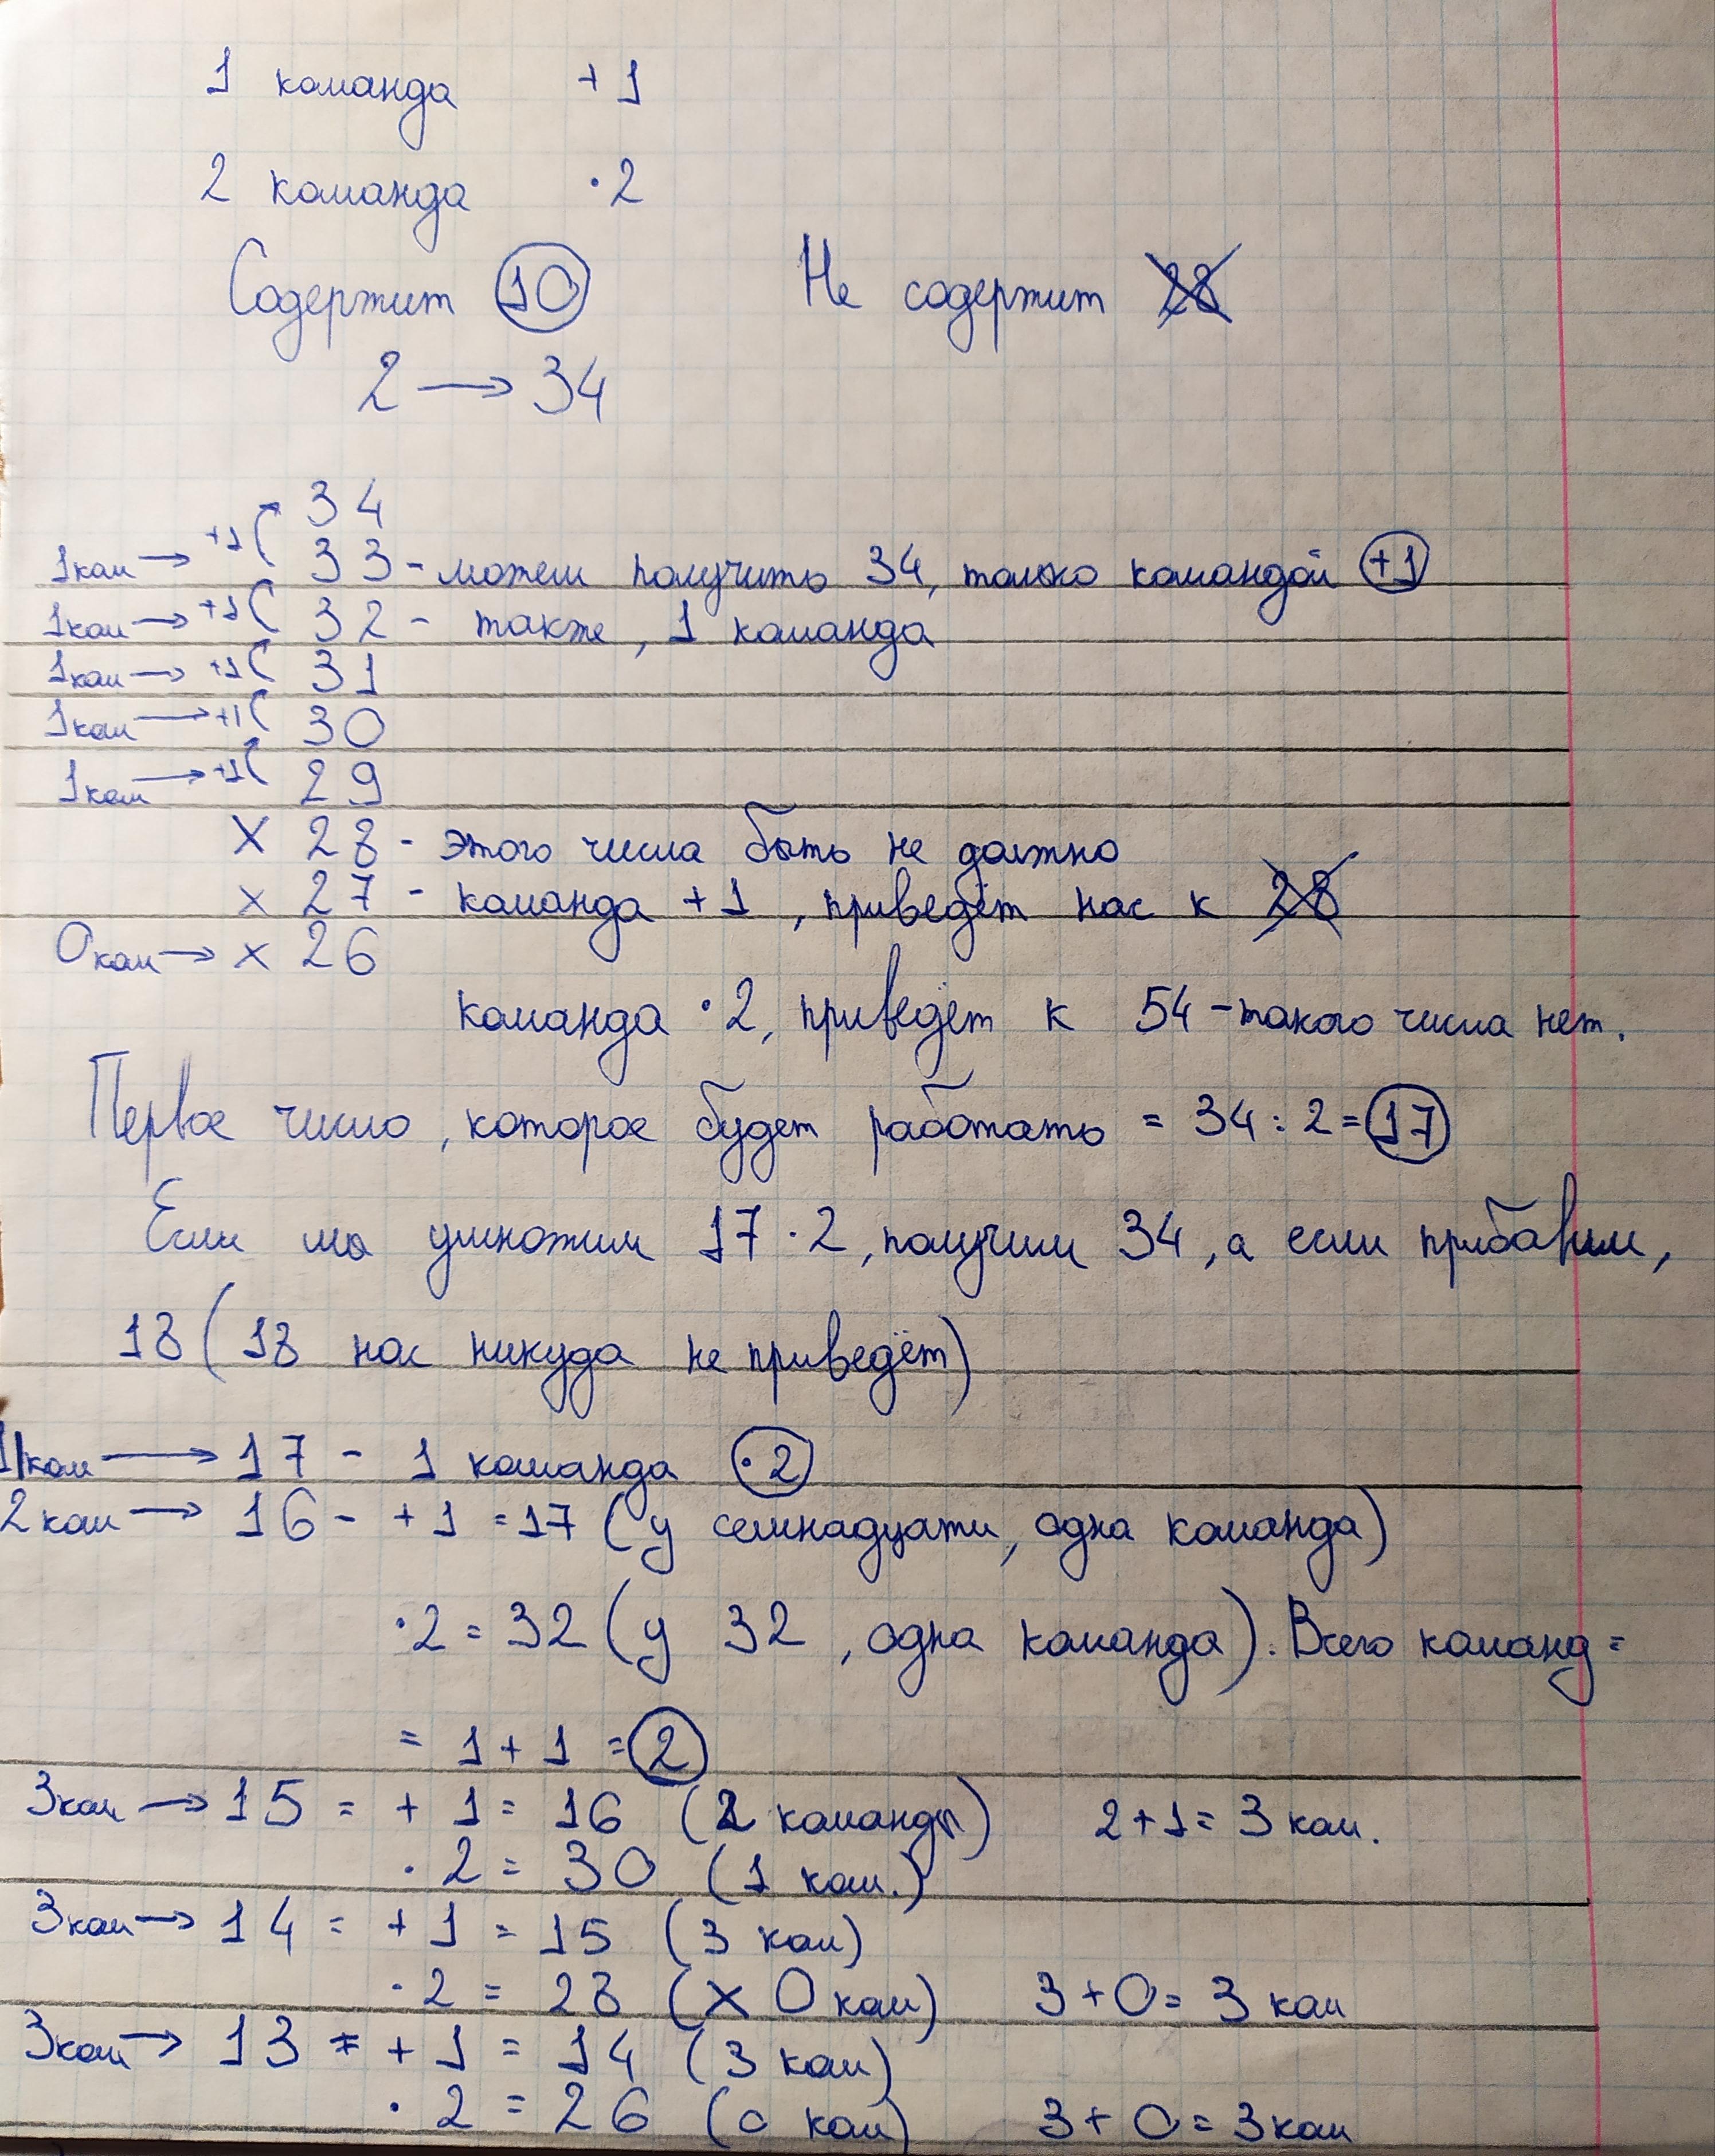 1 команда +1
2 команда ·2
Содержит 10 Не содержит 28
2 → 34
34
1ком → +1 33 - можем получить 34, только командой +1
1ком → +1 32 - также, 1 команда
1ком → +1 31
1ком → +1 30
1ком → +1 29
X 28 - этого числа быть не должно
x 27 - команда +1, приведёт нас к 28
0ком → x 26
команда ·2, приведёт к 54 - такого числа нет.
Первое число, которое будет работать = 34 : 2 = 17
Если мы умножим 17 · 2, получим 34, а если прибавим,
18 (18 нас никуда не приведёт)
1ком → 17 - 1 команда ·2
2ком → 16 - +1 = 17 (у семнадцати, одна команда)
·2 = 32 (у 32, одна команда). Всего команд =
= 1 + 1 = 2
3ком → 15 = + 1 = 16 (2 команды) 2+1 = 3 ком.
· 2 = 30 (1 ком.)
3ком → 14 = + 1 = 15 (3 ком)
· 2 = 28 (X 0 ком) 3+0 = 3 ком
3ком → 13 = + 1 = 14 (3 ком)
· 2 = 26 (0 ком) 3 + 0 = 3ком